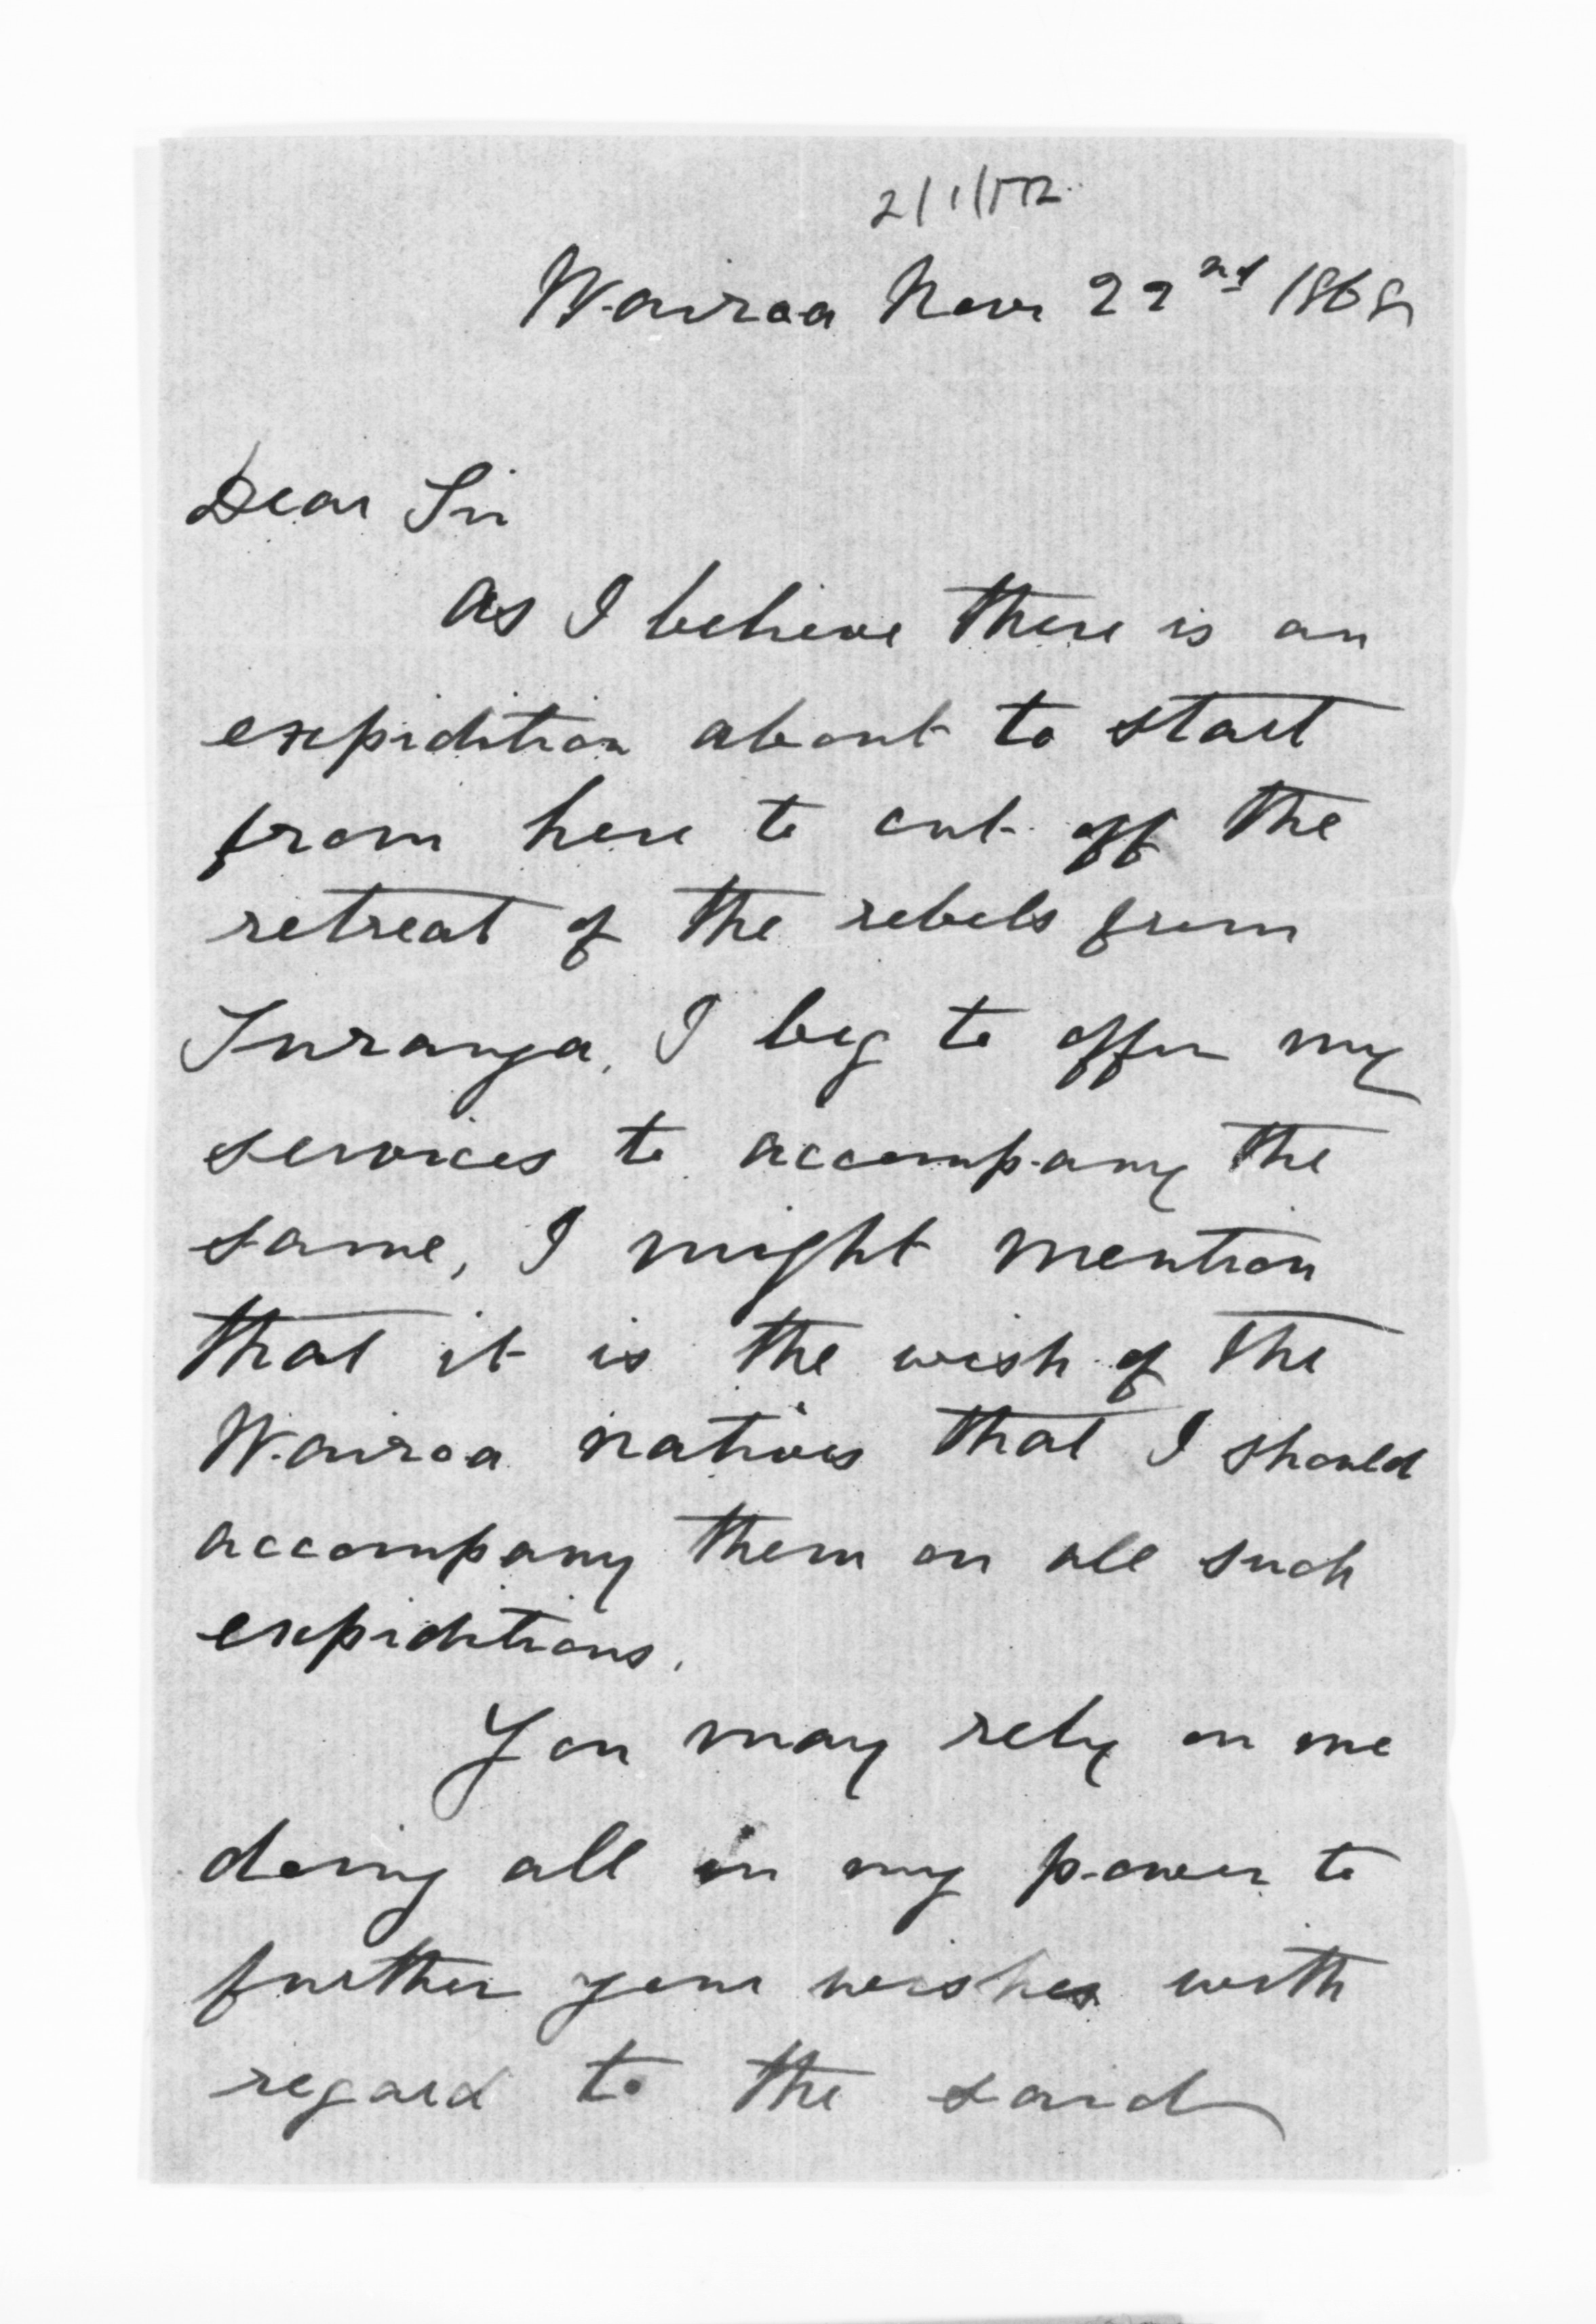 Wairoa Nov 22nd 1868
Dear Sir
As I believe there is an
expidition about to start
from here to cut off the
retreat of the rebels from
Turanga, I beg to offer my
services to accompany the
same, I might mention
that it is the wish of the
Wairoa natives that I should
accompany them on all such
expiditions.
You may rely on me
doing all in my power to
further your wishes with
regard to the said